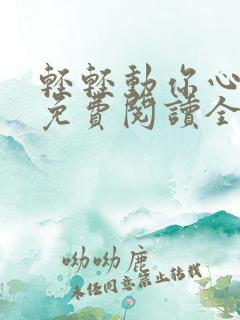 輕輕動你心
免費閱讀全
呦呦鹿
未任同意禁止转载